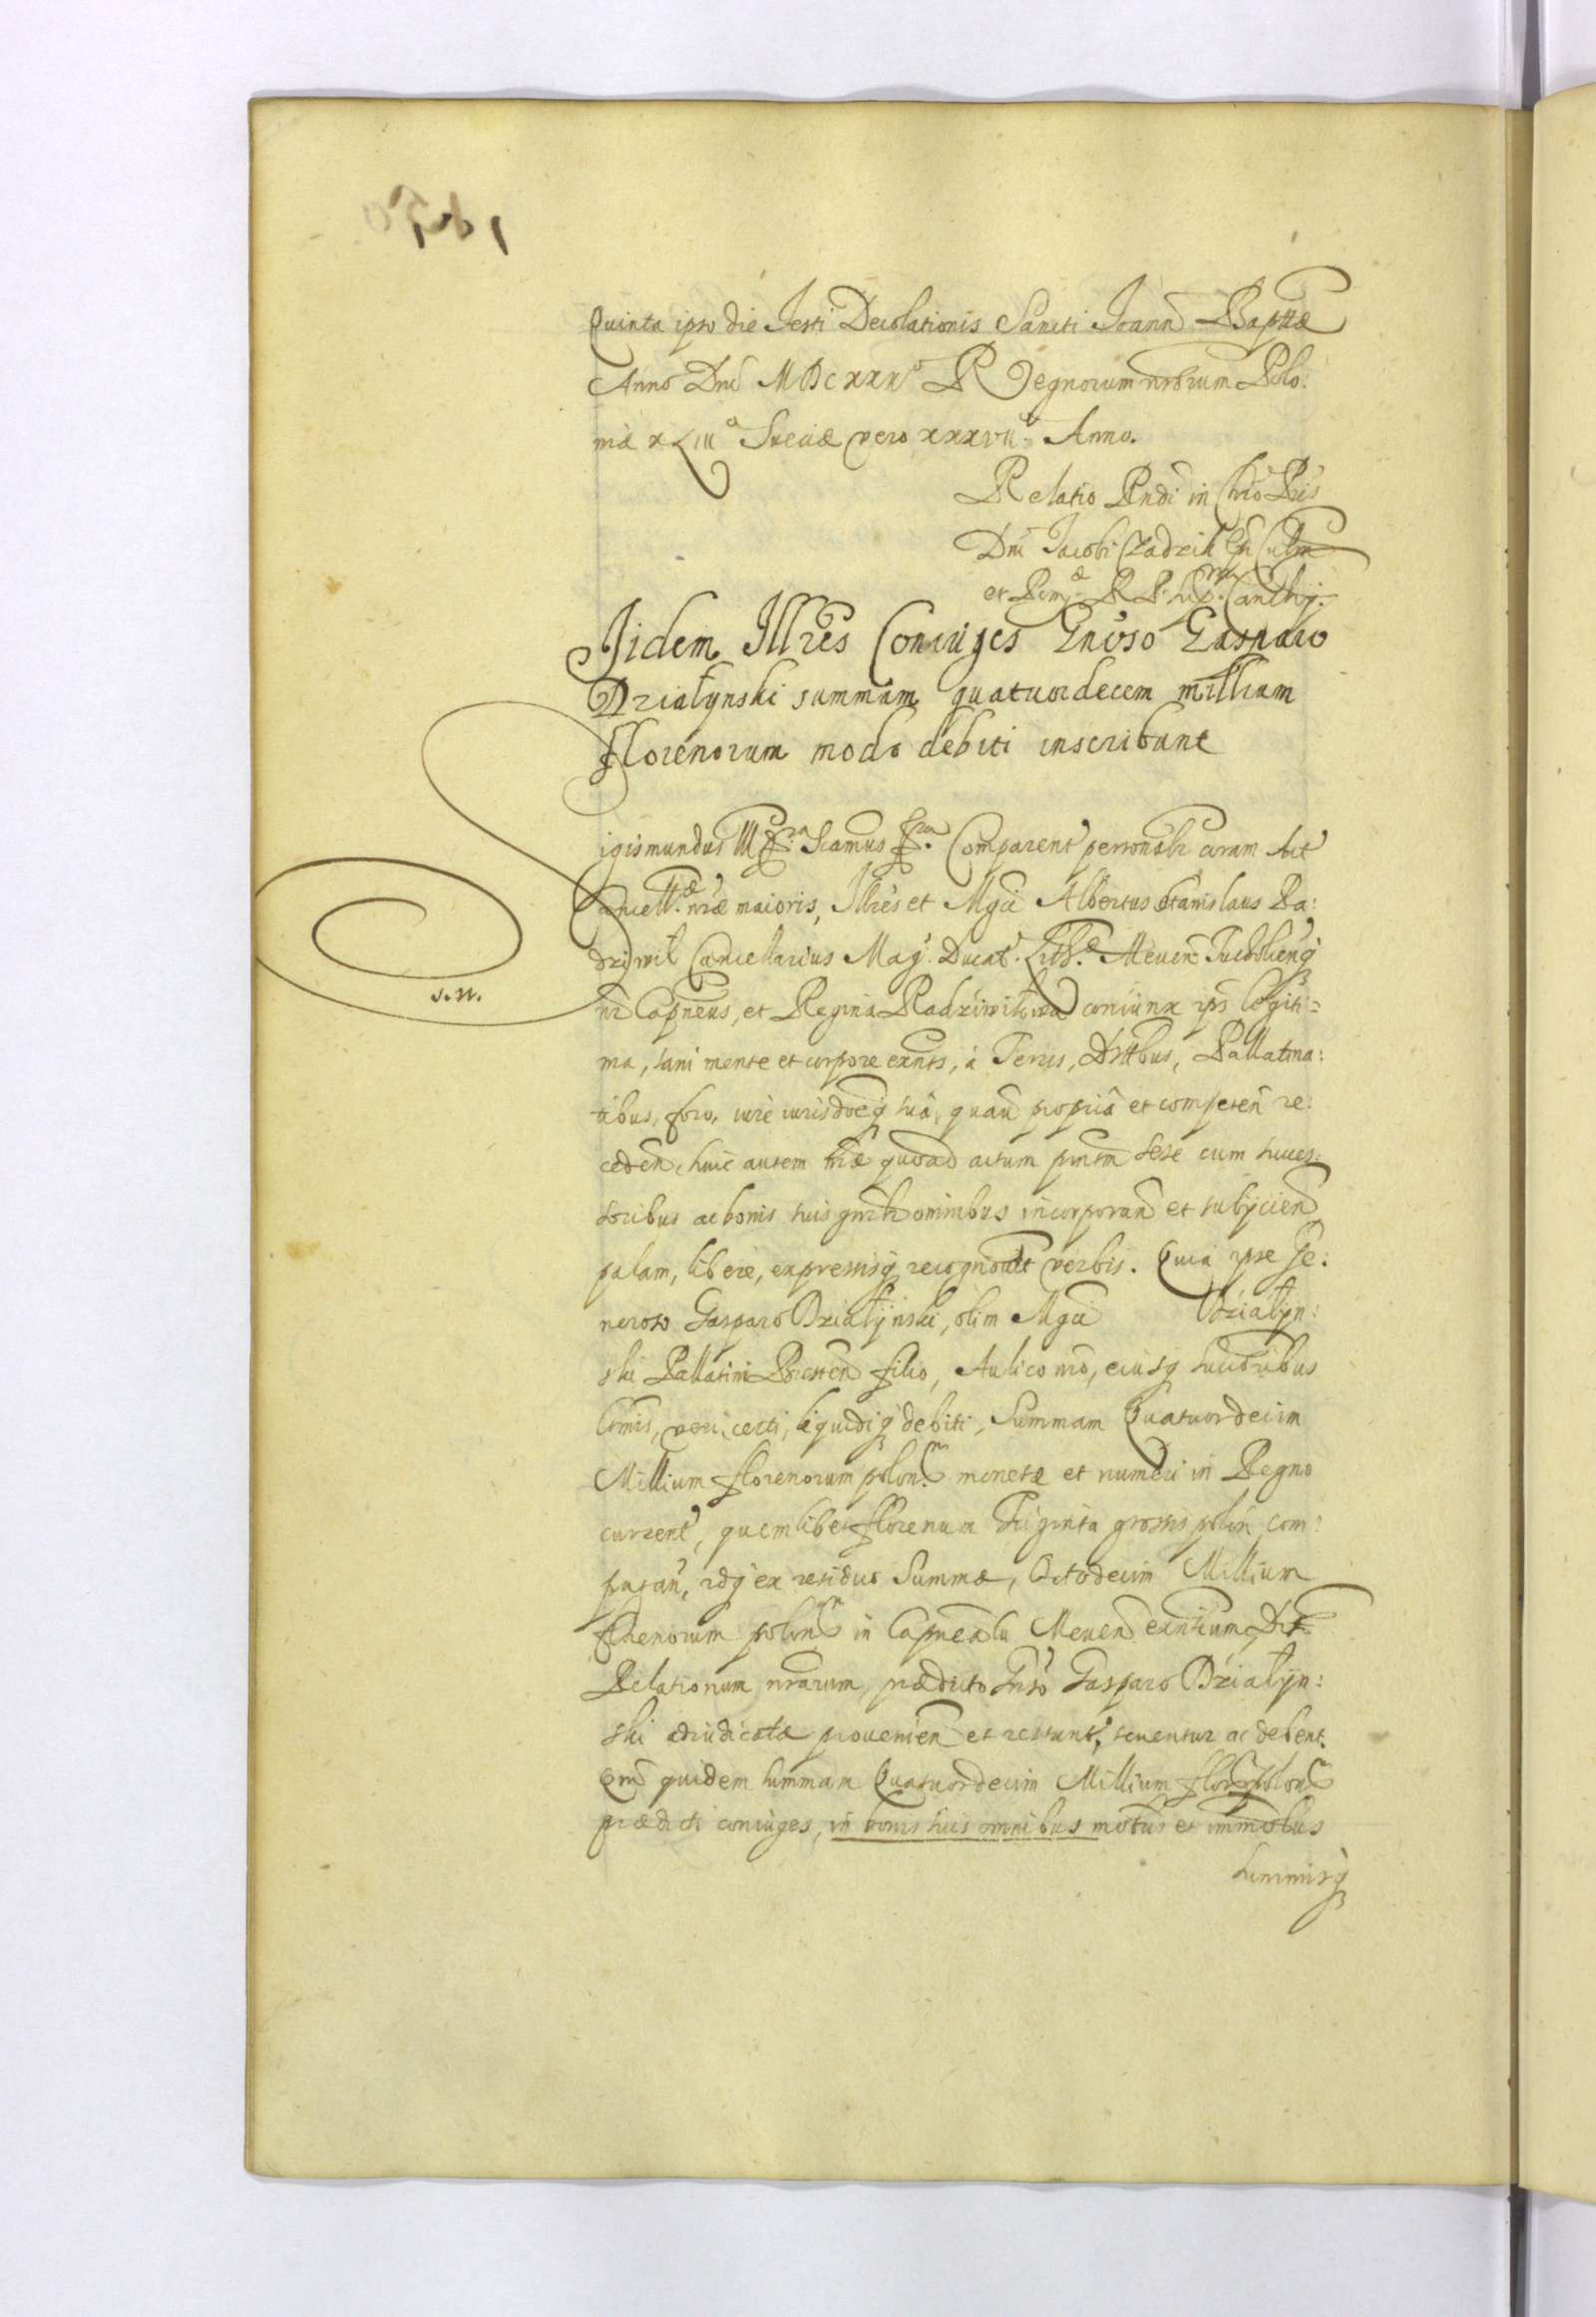 Quinta ipso die Festi Decolationis Sancti Joann Baptæ
Anno Dni MDCXXXº Regnorum nrorum Polo:
niæ XLIIIº Sueciæ vero XXXVIIº Anno.
Relatio Rndi in Chro Pris
Dni Jacobi Zadzik Epi Culm
et Pom: R P. sup. Cancrij.
Iidem Illres Coniuges Gnoso Gasparo
Działynski summam quatuordecem millium
florenorum modo debiti inscribunt
Sigismundus III Scimus Comparent personalr coram Act
Cancell. nræ maioris, Illres et Mgci Albertus Stanislaus Ra:
dziwil Cancellarius Mag. Ducat. Lith. Meuen Tucholienq
nr Capneus, et Regina Radziwilowa coniunx ips legiti=
ma, sani mente et corpore exnts, à Terris, Dsttbus, Pallatina:
tibus, foro, iure iurisdoeq suâ, quavi propriâ et competen re:
ceden, huic autem nræ quoad actum pntm sese cum succes:
soribus ac bonis suis gnrlr omnibus incorporan et subijcien
palam, libere, expressisq recognouet verbis. Quia ipse Ge:
neroso Gasparo Działijnski, olim Mgci Działyn:
ski Pallatini Bresten filio, Aulico nro, eiusq succoribus
ltmis, veri, certi, liquidiq debiti, Summam Quatuordecim
Millium florenorum polon. monetæ et numeri in Regno
current, quemlibet florenum Triginta grossis polon com:
putan, idq ex residuo Summæ, Octodecim Millium
florenorum polon in Capneatu Meuen exntium Dto
Relationum nrarum, prædicto Gnso Gasparo Działyn:
ski adiudicatæ prouenien et restant, tenentur ac debent.
Qm quidem summam Quatuordecim Millium flor polon
prædicti coniuges, in bonis suis omnibus mobus et immobus
summisq
S.N.